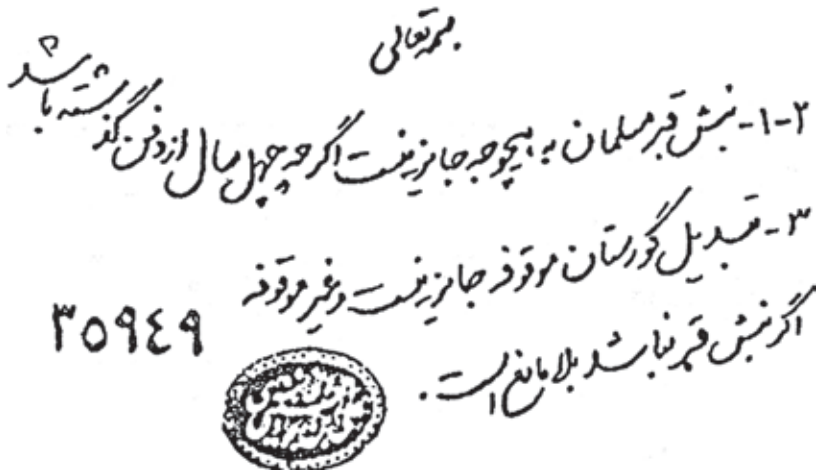 بسمه تعالی
۱-۲- نبش قبر مسلمان به هیچوجه جایز نیست اگر چه چهل سال از دفن گذشته باشد
۳- تبدیل گورستان موقوفه جایز نیست و غیر موقوفه
اگر نبش قبر نباشد بلا مانع است.
۳۵۹٤۹